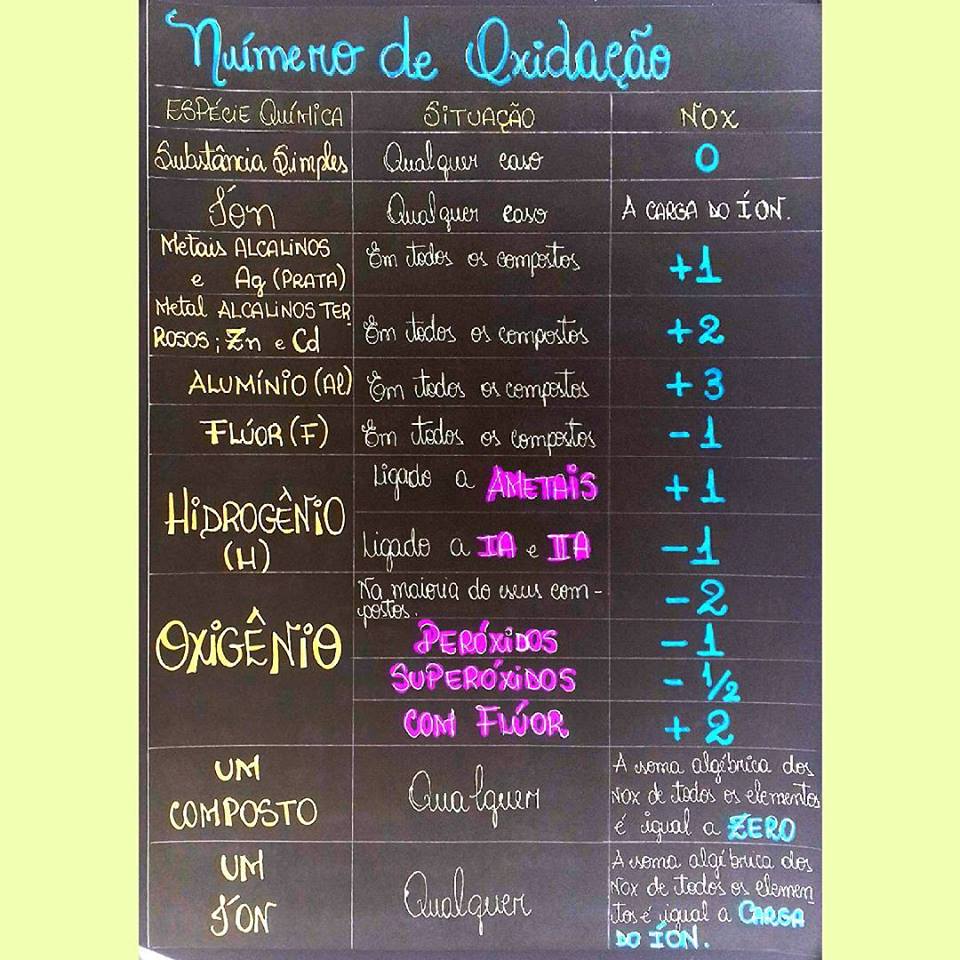 Número de Oxidação
ESPÉCIE QUÍMICA SITUAÇÃO NOX
Substância Simples Qualquer caso 0
Íon Qualquer caso A CARGA DO ÍON.
Metais ALCALINOS
e Ag (PRATA) Em todos os compostos +1
Metal ALCALINOS TER
ROSOS; Zn e Cd Em todos os compostos +2
ALUMÍNIO (Al) Em todos os compostos +3
FLÚOR (F) Em todos os compostos -1
HIDROGÊNIO
(H)
Ligado a AMETAIS +1
Ligado a IA e IIA -1
OXIGÊNIO
Na maioria do seus com-
postos. -2
PERÓXIDOS -1
SUPERÓXIDOS - 1/2
COM FLÚOR +2
UM
COMPOSTO
Qualquer
A soma algébrica dos
Nox de todos os elementos
é igual a ZERO
UM
ÍON
Qualquer
A soma algébrica dos
Nox de todos os elemen
tos é igual a CARGA
DO ÍON.